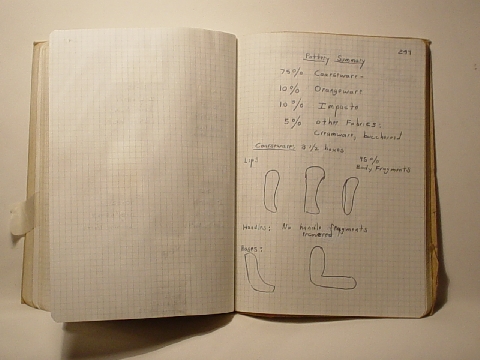 299
Pottery Summary
75% Courseware-
10% Orangeware
10% Impasto
5% other Fabrics:
Creamware, buccheroid
Courseware: 3 1/2 boxes
Lips:
95%
Body Fragments
Handles: No handle fragments
recovered
Bases: